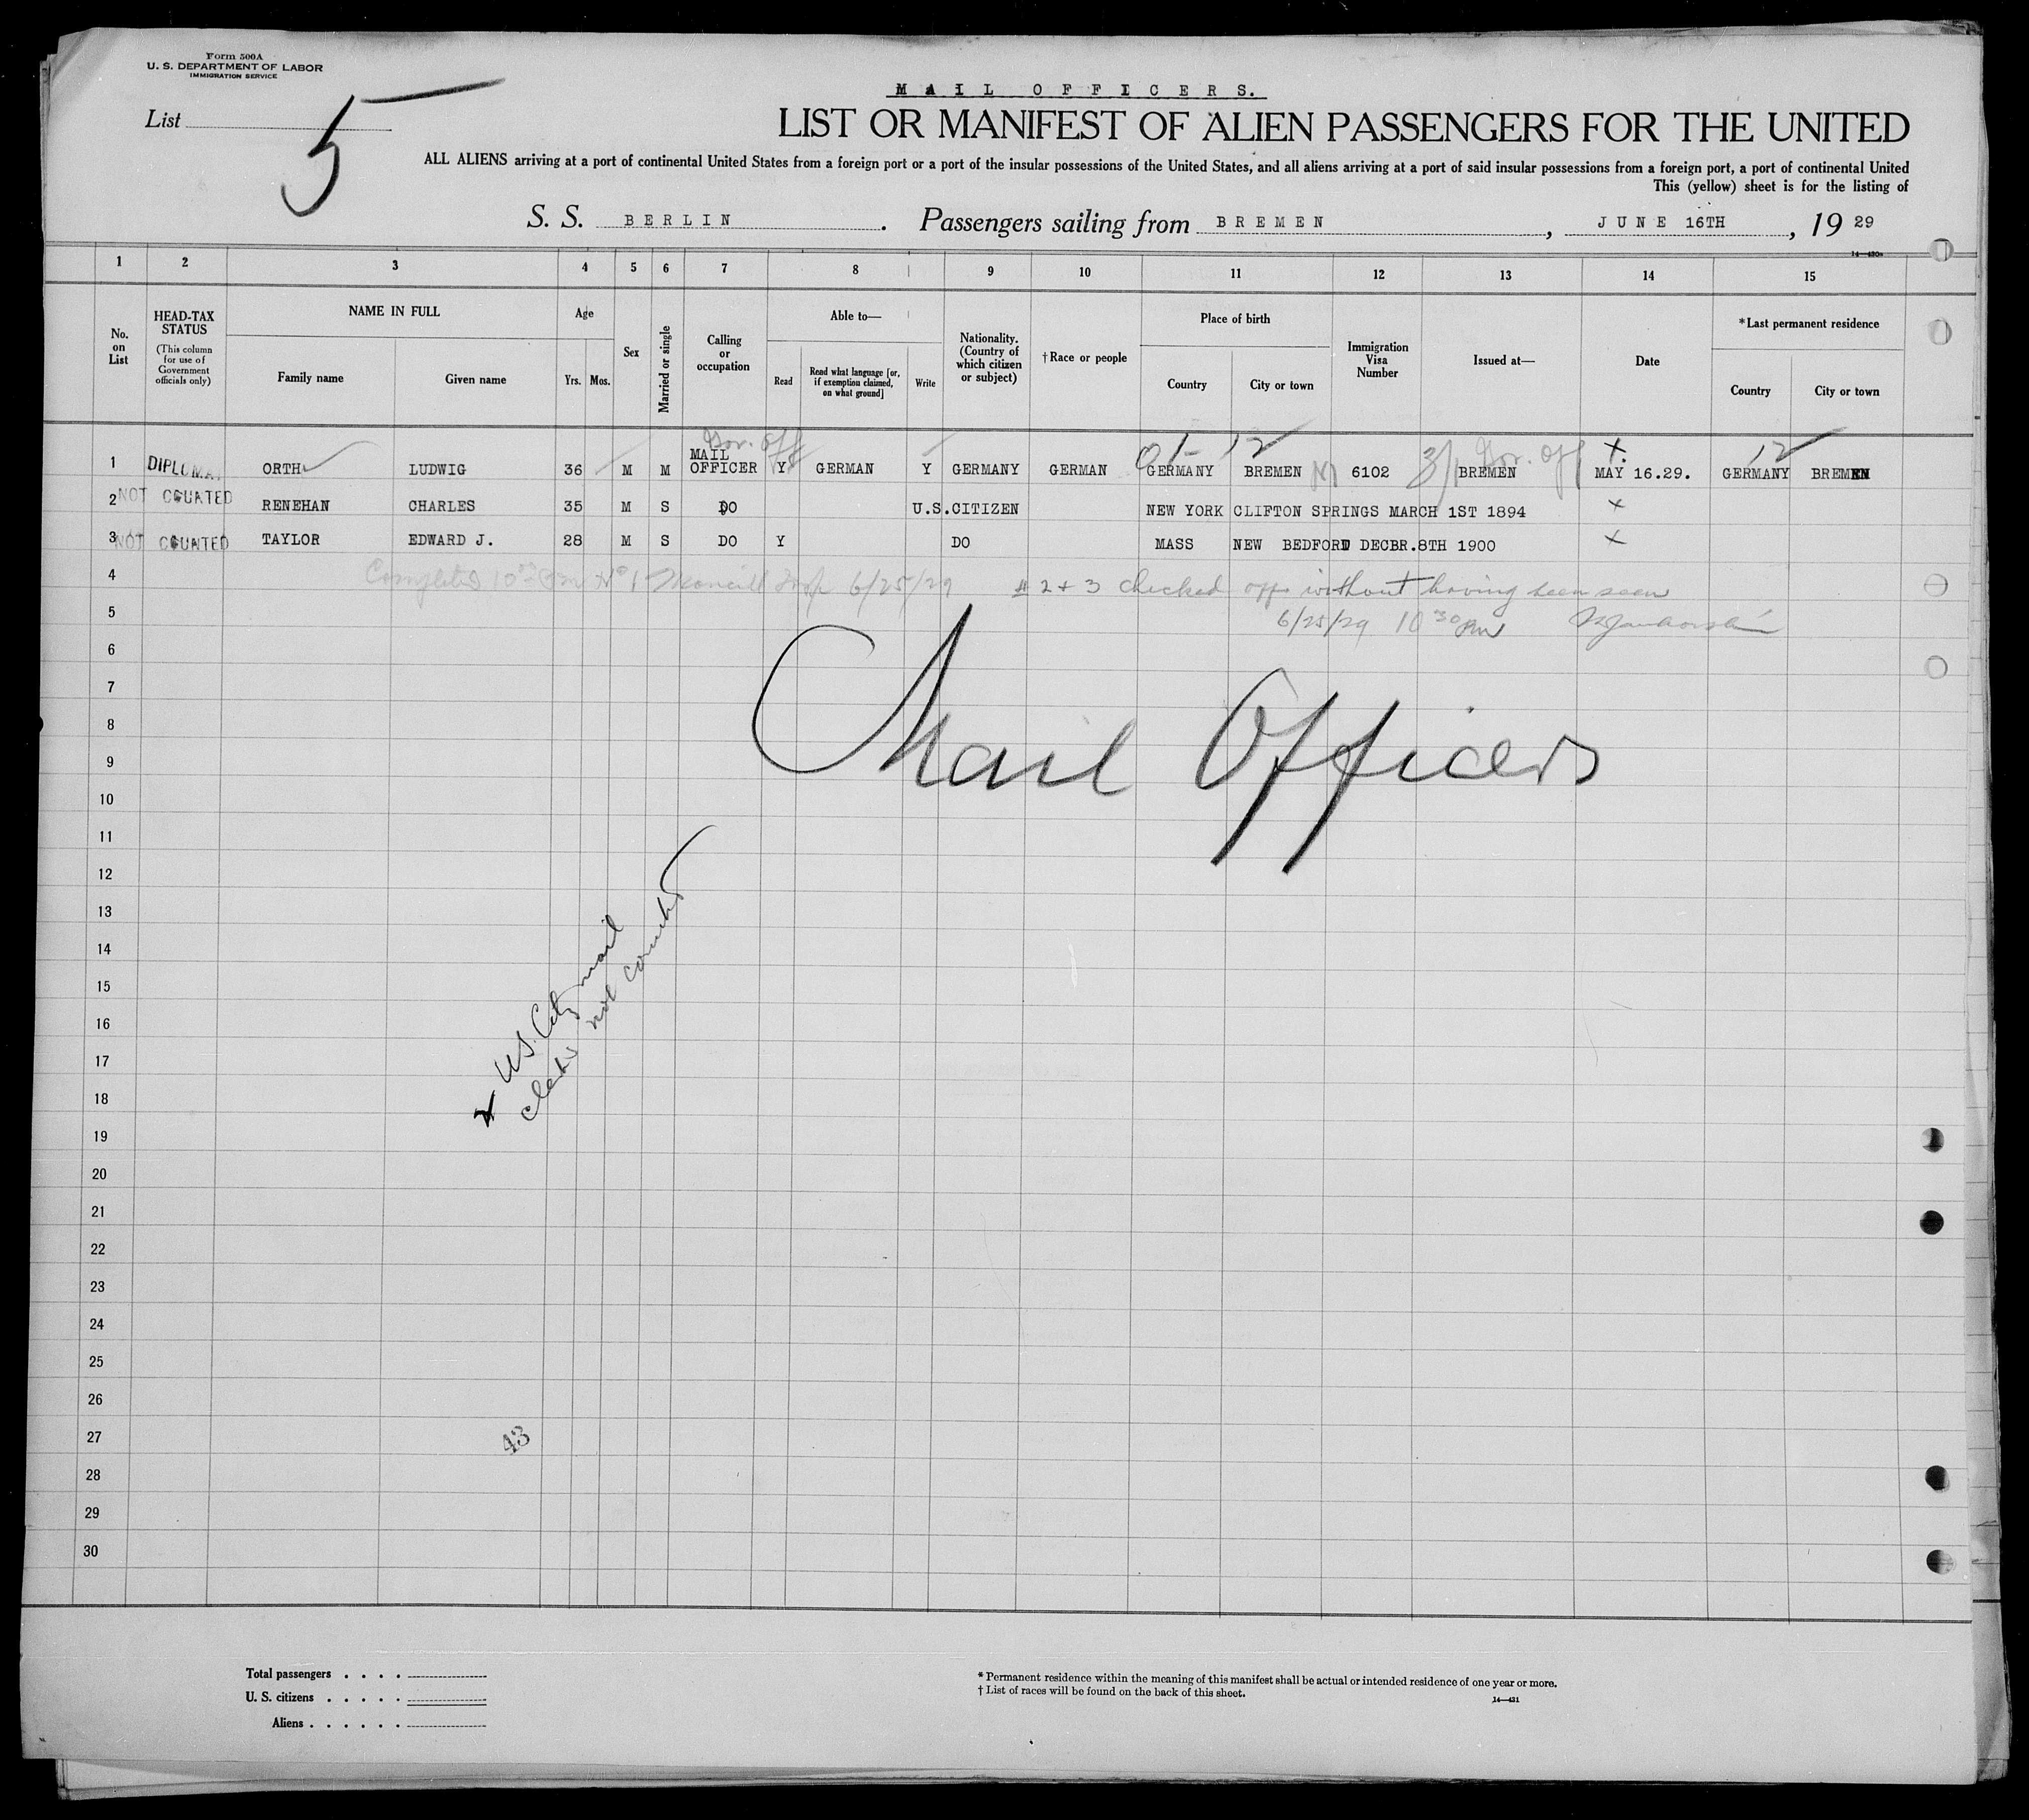 Form 500A
U. S. DEPARTMENT OF LABOR
IMMIGRATION SERVICE
List
5
MAIL OFFICERS.
LIST OR MANIFEST OF ALIEN PASSENGERS FOR THE UNITED
ALL ALIENS arriving at a port of continental United States from a foreign port or a port of the insular possessions of the United States, and all aliens arriving at a port of said insular possessions from a foreign port, a port of continental United
This (yellow) sheet is for the listing of
S. S. BERLIN. Passengers sailing from BREMEN, JUNE 16TH, 19 29
14—430a
1 2 3 4 5 6 7 8 9 10 11 12 13 14 15
No. on List
HEAD-TAX STATUS
(This column for use of Government officials only)
NAME IN FULL
Family name Given name
Age
Yrs. Mos.
Sex
Married or single
Calling or occupation
Able to—
Read
Read what language [or, if exemption claimed, on what ground]
Write
Nationality. (Country of which citizen or subject)
† Race or people
Place of birth
Country City or town
Immigration Visa Number
Issued at—
Date
* Last permanent residence
Country City or town
Gov. Off 01- 12 3/1 Gov. Off X 12
1 DIPLOMA ORTH LUDWIG 36 M M MAIL OFFICER Y GERMAN Y GERMANY GERMAN GERMANY BREMEN 6102 BREMEN MAY 16.29. GERMANY BREMEN
2 NOT COUNTED RENEHAN CHARLES 35 M S DO U.S.CITIZEN NEW YORK CLIFTON SPRINGS MARCH 1ST 1894 X
3 NOT COUNTED TAYLOR EDWARD J. 28 M S DO Y DO MASS NEW BEDFORD DECBR.8TH 1900 X
4 Completed 10 No 1 6/25/29 # 2 + 3 checked off without having been seen
5 6/25/29 10 30 PM
6
7
8
Mail Officers
9
10
11
12
13
14
15
16
17
18
X US. Citz mail
clerks not counted
19
20
21
22
23
24
25
26
27
43
28
29
30
Total passengers . . . .
U. S. citizens . . . . .
Aliens . . . . . .
* Permanent residence within the meaning of this manifest shall be actual or intended residence of one year or more.
† List of races will be found on the back of this sheet.
14—431